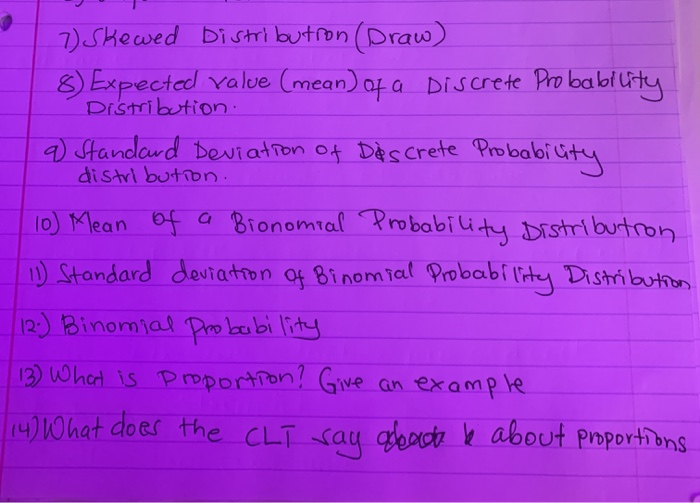 7) Skewed Distribution (Draw)
8) Expected value (mean) of a Discrete Probability
Distribution.
9) Standard Deviation of Discrete Probability
distribution.
10) Mean of a Bionomial Probability Distribution
11) Standard deviation of Binomial Probability Distribution
12.) Binomial Probability
13) What is Proportion? Give an example
14) What does the CLT say about proportions